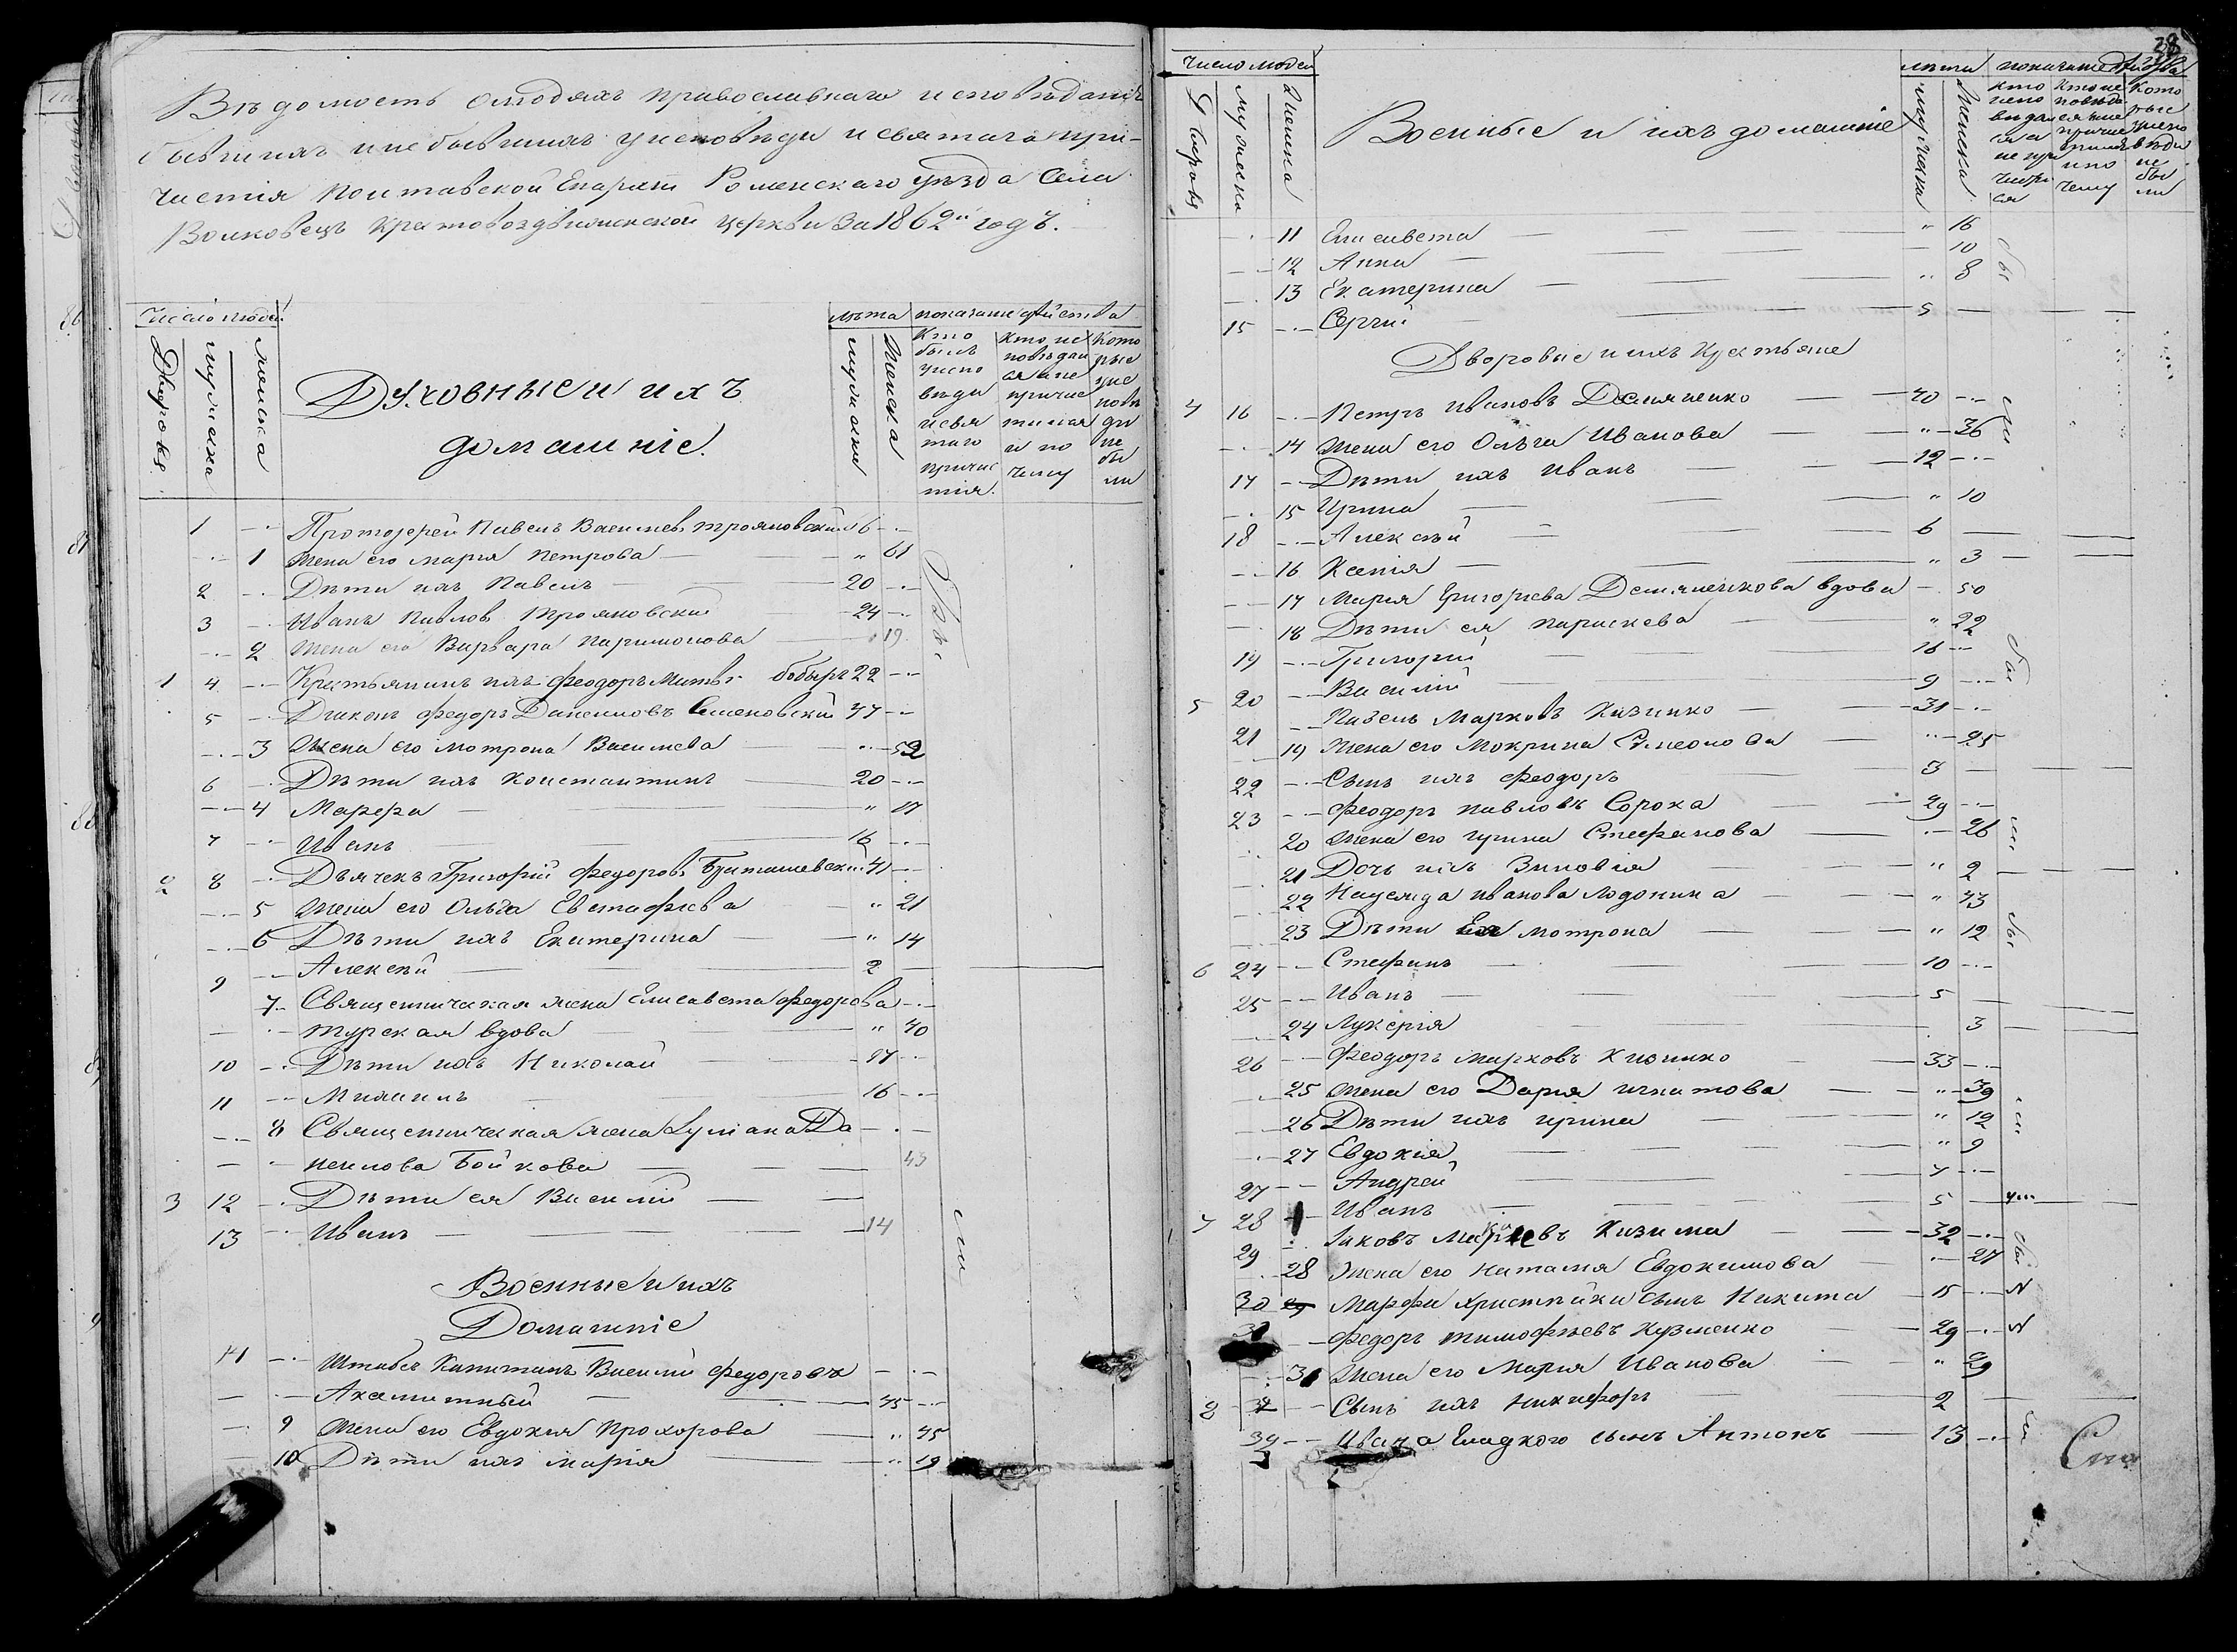 Вѣдомость о людяхъ православнаго исповѣданія
бывшихъ и небывшихъ у исповѣди и святаго при-
чистія Полтавской Епархіи Роменскаго уѣзда Села
Волковецъ Крестовоздвиженской церкви за 1862й годъ.
Число людей
Дворовъ
мужеска
женска
Духовные и ихъ
домашніе.
лѣта
мужска
женска
показаніе дѣйства
Кто былъ у исповѣди и святаго причистія.
Кто исповѣдался а не причистился и по чему
Которые у исповѣди не были
1 Протоіерей Павелъ Васильев Трояновскій 6
1 Жена его Марія Петрова " 61
2 Дѣти ихъ Павелъ 20
3 Иванъ Павлов Трояновскій 24
2 Жена его Варвара Парфмонова 19
1 4 Крестьянинъ ихъ Феодоръ Матвѣ. бобырь 22
5 Діаконъ Федоръ Даниловъ Семеновскій 37
3 Жена его Мотрона Василиева 52
6 Дѣти ихъ Константинъ 20
4 Марфа " 17
7 Иванъ 16
2 8 Дьячекъ Григорій Федоровъ 41
5 Жена его Ольга Евстафіева " 21
6 Дѣти ихъ Екатерина " 14
9 Алексѣй 2
7 Священническая жена Елисавета Федорова
Турская вдова " 40
10 Дѣти ихъ Николай 17
11 Михаилъ 16
8 Священническая жена Да
нилова Бойкова 43
3 12 Дѣти ея Василій
13 Иванъ 14
Военные и ихъ
Домашніе
14 Штабсъ Капитанъ Василій Федоровъ
Акаситный 45
9 Жена его Евдокія Прохорова " 45
10 Дѣти ихъ Марія " 19
28
Число людей
Дворовъ
мужеска
женска
Военные и ихъ домашніе
лѣта
мужска
женска
показаніе дѣйства
11 Елисавета " 16
12 Анна 10
13 Екатерина " 8
15 Сергій 5
Дворовые и ихъ Крестьяне
4 16 Петръ Ивановъ Демяненко 40
14 Жена его Ольга Иванова " 36
17 Дѣти ихъ Иванъ 12
15 Ирина " 10
18 Алексѣй 6
16 Ксенія " 3
17 Марія Григорієва Демяненкова вдова 50
18 Дѣти ея Параскева " 22
19 Григорій 16
20 Василій 9
5 21 Павелъ Марковъ Кизимко 31
19 Жена его Мокрина Симеонова 25
22 Сынъ ихъ Феодоръ 3
23 Феодоръ Павловъ Сорока 29
20 Жена его Ирина Стефанова 26
21 Дочь ихъ Зиновія " 2
22 Надежда Иванова Лодонина " 43
23 Дѣти Ея Мотрона " 12
6 24 Стефанъ 10
25 Иванъ 5
24 Лукерія 3
26 Феодоръ Марковъ Кизимко 33
25 Жена его Дарія Игнатова " 39
26 Дѣти ихъ Ирина " 12
27 Евдокія " 9
27 Андрей 7
7 28 Иванъ 5
29 Іаковъ Марковъ Кизима 32
28 Жена его Наталія Евдокимова 27
30 Марфи Христийки сынъ Никита 15
31 Федоръ Тимофѣевъ Кузменко 29
31 Жена его Марія Иванова " 29
8 32 Сынъ ихъ Никифоръ 2
Ивана Гладкого сынъ Антонъ 13